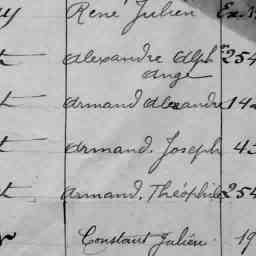 René Julien Ex.
Alexandre Alph 254
Ange
Armand Alexandre 142
Armand. Joseph 43
Armand, Théophile 254
Constant Julien. 19